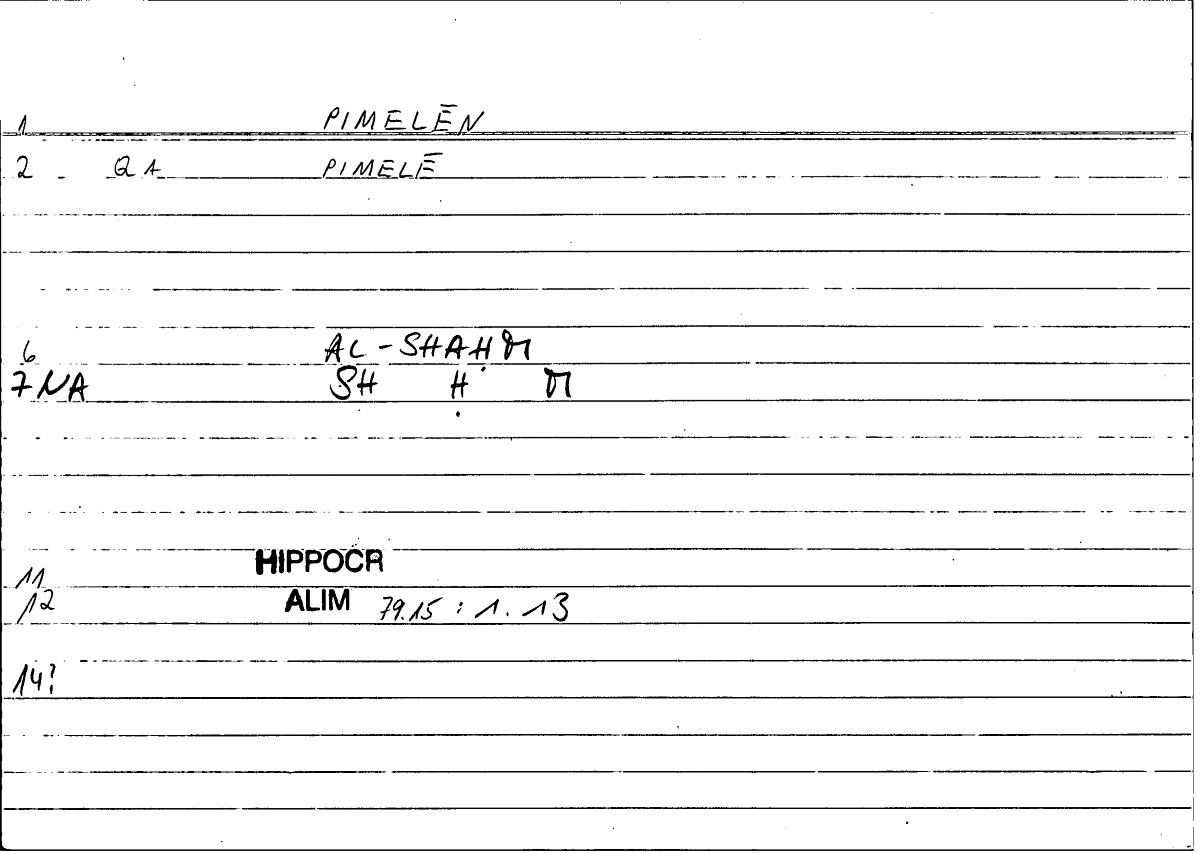 1 PIMELĒN
2 QA PIMELĒ
6 AL-SHAḤM
7 NA SH Ḥ M
11 HIPPOCR
12 ALIM 79.15 : 1. 13
14?